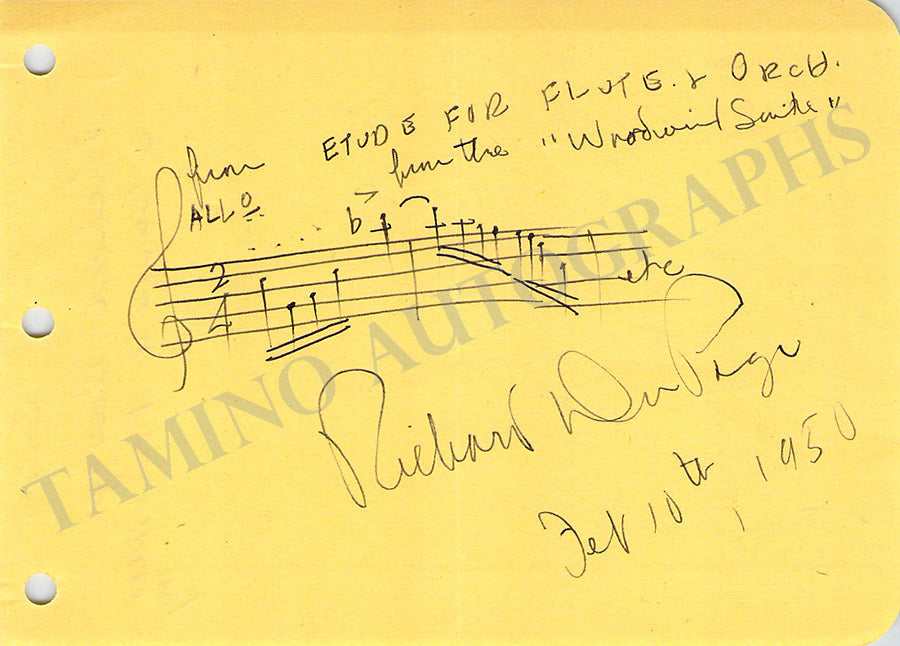 from ETUDE FOR FLUTE & ORCH.
from the "Woodwind Suite"
ALLO
b >
2
4
etc
Richard DuPage
Feb 10th, 1950
TAMINO AUTOGRAPHS